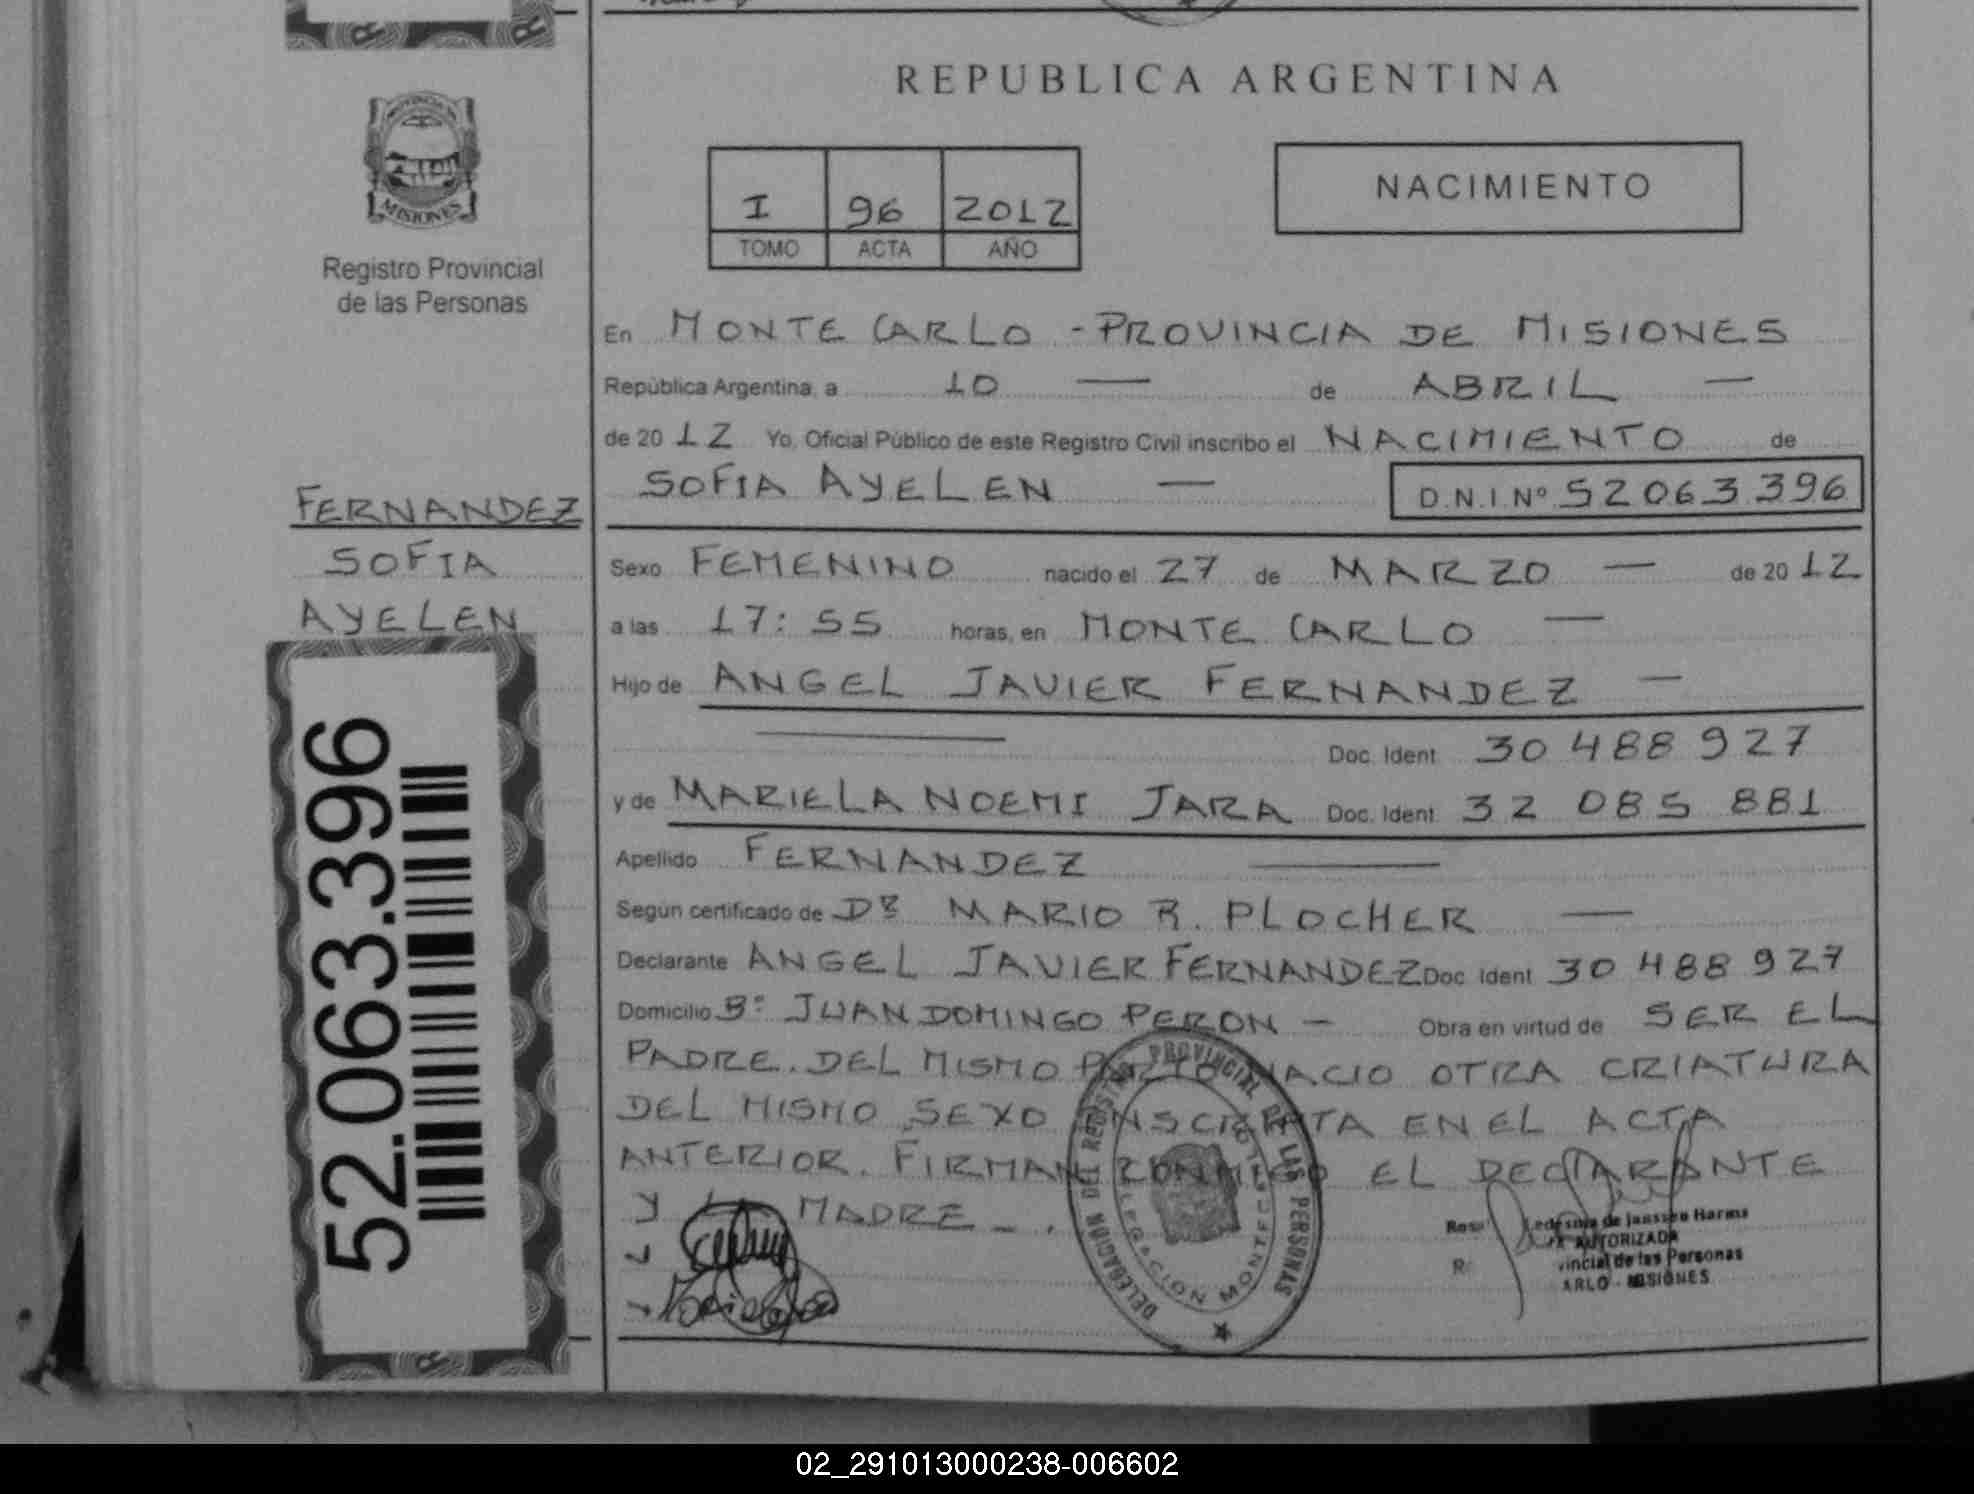 REPUBLICA ARGENTINA
PROVINCIA DE
MISIONES
Registro Provincial
de las Personas
I 96 2012
TOMO ACTA AÑO
NACIMIENTO
En MONTE CARLO - PROVINCIA DE MISIONES
República Argentina, a 10 — de ABRIL —
de 2012 Yo, Oficial Público de este Registro Civil inscribo el NACIMIENTO de
SOFIA AYELEN — D.N.I. Nº 52063396
FERNANDEZ
SOFIA
AYELEN
52.063.396
Sexo FEMENINO nacido el 27 de MARZO — de 2012
a las 17:55 horas, en MONTE CARLO —
Hijo de ANGEL JAVIER FERNANDEZ —
Doc. Ident 30 488 927
y de MARIELA NOEMI JARA Doc. Ident 32 085 881
Apellido FERNANDEZ —
Según certificado de DR MARIO R. PLOCHER —
Declarante ANGEL JAVIER FERNANDEZ Doc. Ident 30 488 927
Domicilio Bº JUAN DOMINGO PERON — Obra en virtud de SER EL
PADRE. DEL MISMO PARTO NACIO OTRA CRIATURA
DEL MISMO SEXO INSCRIPTA EN EL ACTA
ANTERIOR. FIRMAN CONMIGO EL DECLARANTE
Y MADRE - .
DELEGACION DEL REGISTRO PROVINCIAL DE LAS PERSONAS
DELEGACION MONTECARLO
Rosa Ledesma de Janssen Harms
AUTORIZADA
vincial de las Personas
ARLO - MISIONES
02_291013000238-006602